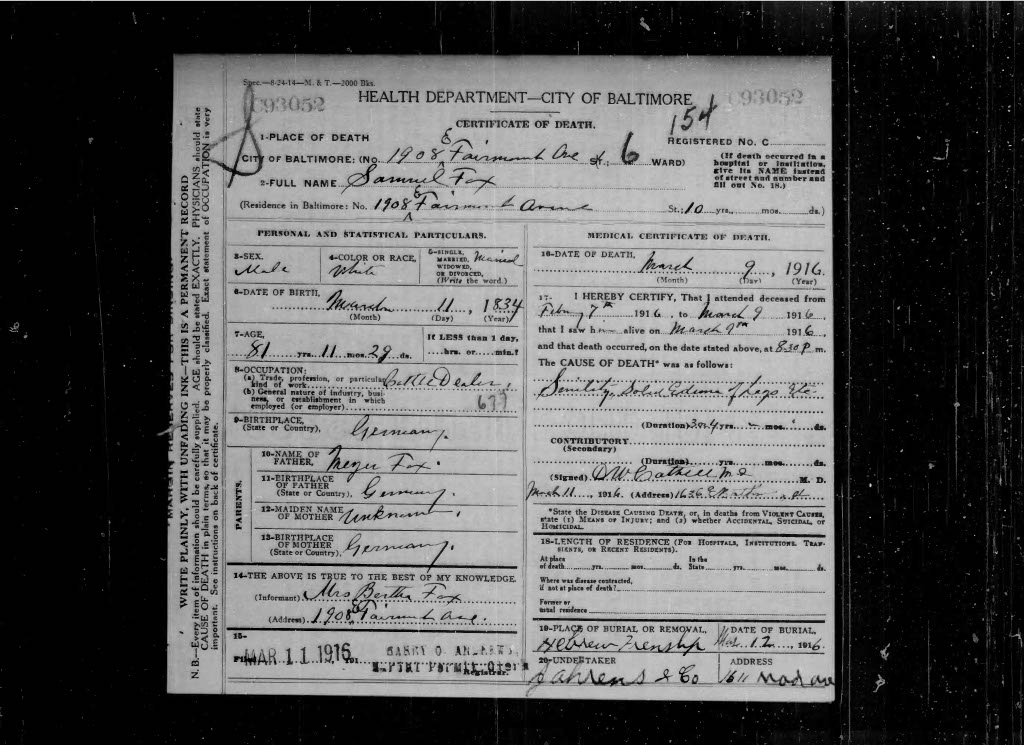 Spec.—8-24-14—M. & T.—2000 Bks.
C93052
HEALTH DEPARTMENT—CITY OF BALTIMORE
C93052
CERTIFICATE OF DEATH.
154
1-PLACE OF DEATH
REGISTERED NO. C
CITY OF BALTIMORE: (No. 1908 E Fairmount Ave St.: 6 WARD)
(If death occurred in a hospital or institution, give its NAME instead of street and number and fill out No. 18.)
2-FULL NAME Samuel Fox
(Residence in Baltimore: No. 1908 E Fairmount Avenue St.: 10 yrs., mos. ds.)
PERSONAL AND STATISTICAL PARTICULARS.
3-SEX. Male
4-COLOR OR RACE, White
5-SINGLE, MARRIED, WIDOWED, OR DIVORCED, (Write the word.) Married
6-DATE OF BIRTH, 11, 1834
(Month) (Day) (Year)
7-AGE, 81 yrs. 11 mos. 29 ds.
If LESS than 1 day, hrs. or min.?
8-OCCUPATION:
(a) Trade, profession, or particular kind of work Cattle Dealer.
(b) General nature of industry, business, or establishment in which employed (or employer)
9-BIRTHPLACE, (State or Country), Germany.
PARENTS.
10-NAME OF FATHER, Meyer Fox.
11-BIRTHPLACE OF FATHER (State or Country), Germany.
12-MAIDEN NAME OF MOTHER Unknown.
13-BIRTHPLACE OF MOTHER (State or Country), Germany.
14-THE ABOVE IS TRUE TO THE BEST OF MY KNOWLEDGE.
(Informant) Mrs Bertha Fox
(Address) 1908 E Fairmount Ave.
15-
MAR 11 1916 191
HARRY O. ANDREWS
Registrar.
MEDICAL CERTIFICATE OF DEATH.
16-DATE OF DEATH, March 9, 1916
(Month) (Day) (Year)
17- I HEREBY CERTIFY, That I attended deceased from
7th 1916, to March 9 1916,
that I saw h alive on March 9th 1916
and that death occurred, on the date stated above, at 8.30 P m.
The CAUSE OF DEATH* was as follows:
Senility, of Legs Etc
(Duration) 3 or 4 yrs. mos. ds.
CONTRIBUTORY (Secondary)
(Duration) yrs. mos. ds.
(Signed) M. D.
March 11, 1916 (Address)
*State the DISEASE CAUSING DEATH, or, in deaths from VIOLENT CAUSES, state (1) MEANS OF INJURY; and (2) whether ACCIDENTAL, SUICIDAL, or HOMICIDAL.
18-LENGTH OF RESIDENCE (FOR HOSPITALS, INSTITUTIONS, TRANSIENTS, OR RECENT RESIDENTS).
At place of death yrs. mos. ds. In the State yrs. mos. ds.
Where was disease contracted, if not at place of death?
Former or usual residence
19-PLACE OF BURIAL OR REMOVAL, Hebrew
DATE OF BURIAL, Mar. 12, 1916
20-UNDERTAKER & Co
ADDRESS 1611
WRITE PLAINLY, WITH UNFADING INK—THIS IS A PERMANENT RECORD
N. B.—Every item of information should be carefully supplied. AGE should be stated EXACTLY. PHYSICIANS should state
CAUSE OF DEATH in plain terms, so that it may be properly classified. Exact statement of OCCUPATION is very
important. See instructions on back of certificate.